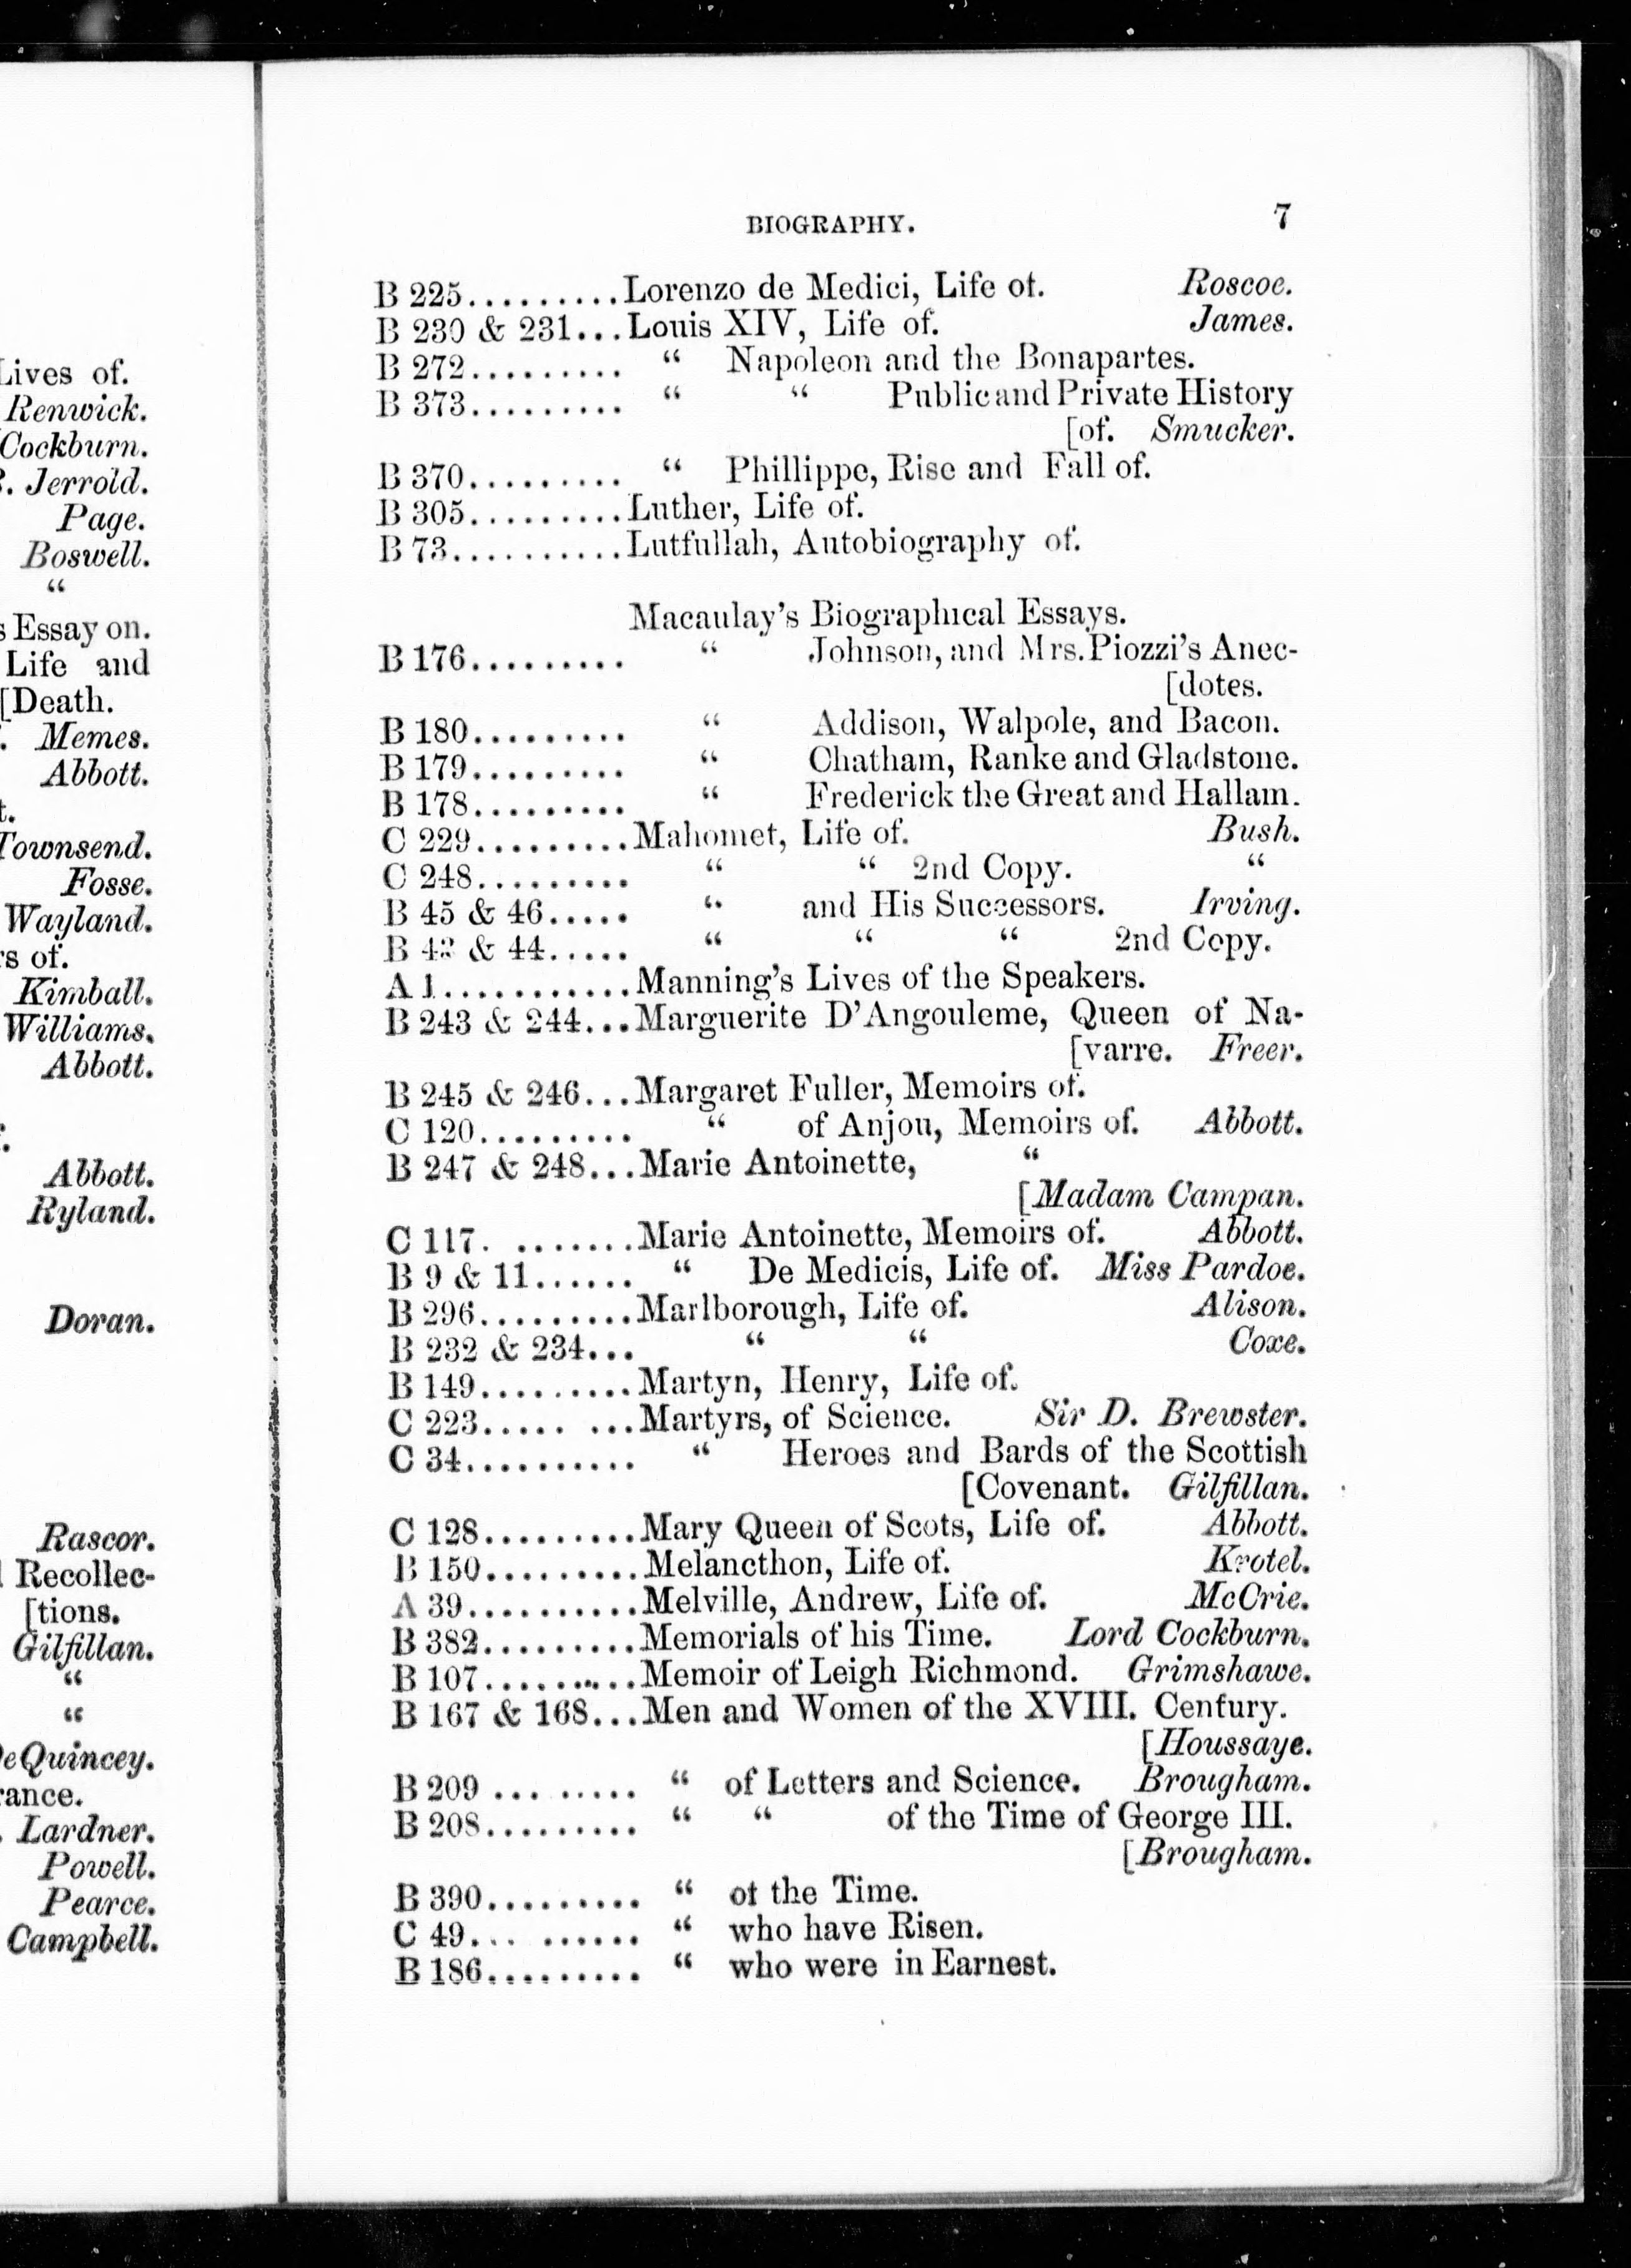 Lives of.
Renwick.
Cockburn.
Jerrold.
Page.
Boswell.
“
Essay on.
Life and
[Death.
Memes.
Abbott.
Townsend.
Fosse.
Wayland.
of.
Kimball.
Williams.
Abbott.
Abbott.
Ryland.
Doran.
Rascor.
Recollec-
[tions.
Gilfillan.
“
“
DeQuincey.
Lardner.
Powell.
Pearce.
Campbell.
BIOGRAPHY. 7
B 225.........Lorenzo de Medici, Life of. Roscoe.
B 230 & 231...Louis XIV, Life of. James.
B 272......... “ Napoleon and the Bonapartes.
B 373......... “ “ Public and Private History
[of. Smucker.
B 370......... “ Phillippe, Rise and Fall of.
B 305.........Luther, Life of.
B 73..........Lutfullah, Autobiography of.
Macaulay's Biographical Essays.
B 176......... “ Johnson, and Mrs. Piozzi's Anec-
[dotes.
B 180......... “ Addison, Walpole, and Bacon.
B 179......... “ Chatham, Ranke and Gladstone.
B 178......... “ Frederick the Great and Hallam.
C 229.........Mahomet, Life of. Bush.
C 248......... “ “ 2nd Copy. “
B 45 & 46..... “ and His Successors. Irving.
B 43 & 44..... “ “ “ 2nd Copy.
A 1...........Manning's Lives of the Speakers.
B 243 & 244...Marguerite D'Angouleme, Queen of Na-
[varre. Freer.
B 245 & 246...Margaret Fuller, Memoirs of.
C 120......... “ of Anjou, Memoirs of. Abbott.
B 247 & 248...Marie Antoinette, “
[Madam Campan.
C 117. .......Marie Antoinette, Memoirs of. Abbott.
B 9 & 11...... “ De Medicis, Life of. Miss Pardoe.
B 296.........Marlborough, Life of. Alison.
B 232 & 234... “ “ Coxe.
B 149.........Martyn, Henry, Life of.
C 223..... ...Martyrs, of Science. Sir D. Brewster.
C 34.......... “ Heroes and Bards of the Scottish
[Covenant. Gilfillan.
C 128.........Mary Queen of Scots, Life of. Abbott.
B 150.........Melancthon, Life of. Krotel.
A 39..........Melville, Andrew, Life of. McCrie.
B 382.........Memorials of his Time. Lord Cockburn.
B 107.........Memoir of Leigh Richmond. Grimshawe.
B 167 & 168...Men and Women of the XVIII. Century.
[Houssaye.
B 209 ... ..... “ of Letters and Science. Brougham.
B 208......... “ “ of the Time of George III.
[Brougham.
B 390......... “ of the Time.
C 49... ...... “ who have Risen.
B 186......... “ who were in Earnest.